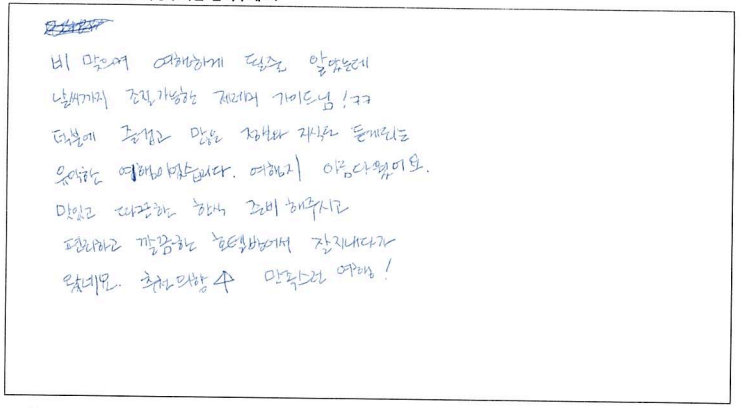 비 맞으며 여행하게 될줄 알았는데
날씨까지 조절가능한 제레미 가이드님!ㅋㅋ
덕분에 즐겁고 많은 정보와 지식도 듣게되는
유익한 여행이었습니다. 여행지 아름다웠어요.
맛있고 따끈한 한식 준비해주시고
편리하고 깔끔한 호텔방에서 잘지내다가
왔네요. 추천의향↑ 만족스런 여행!